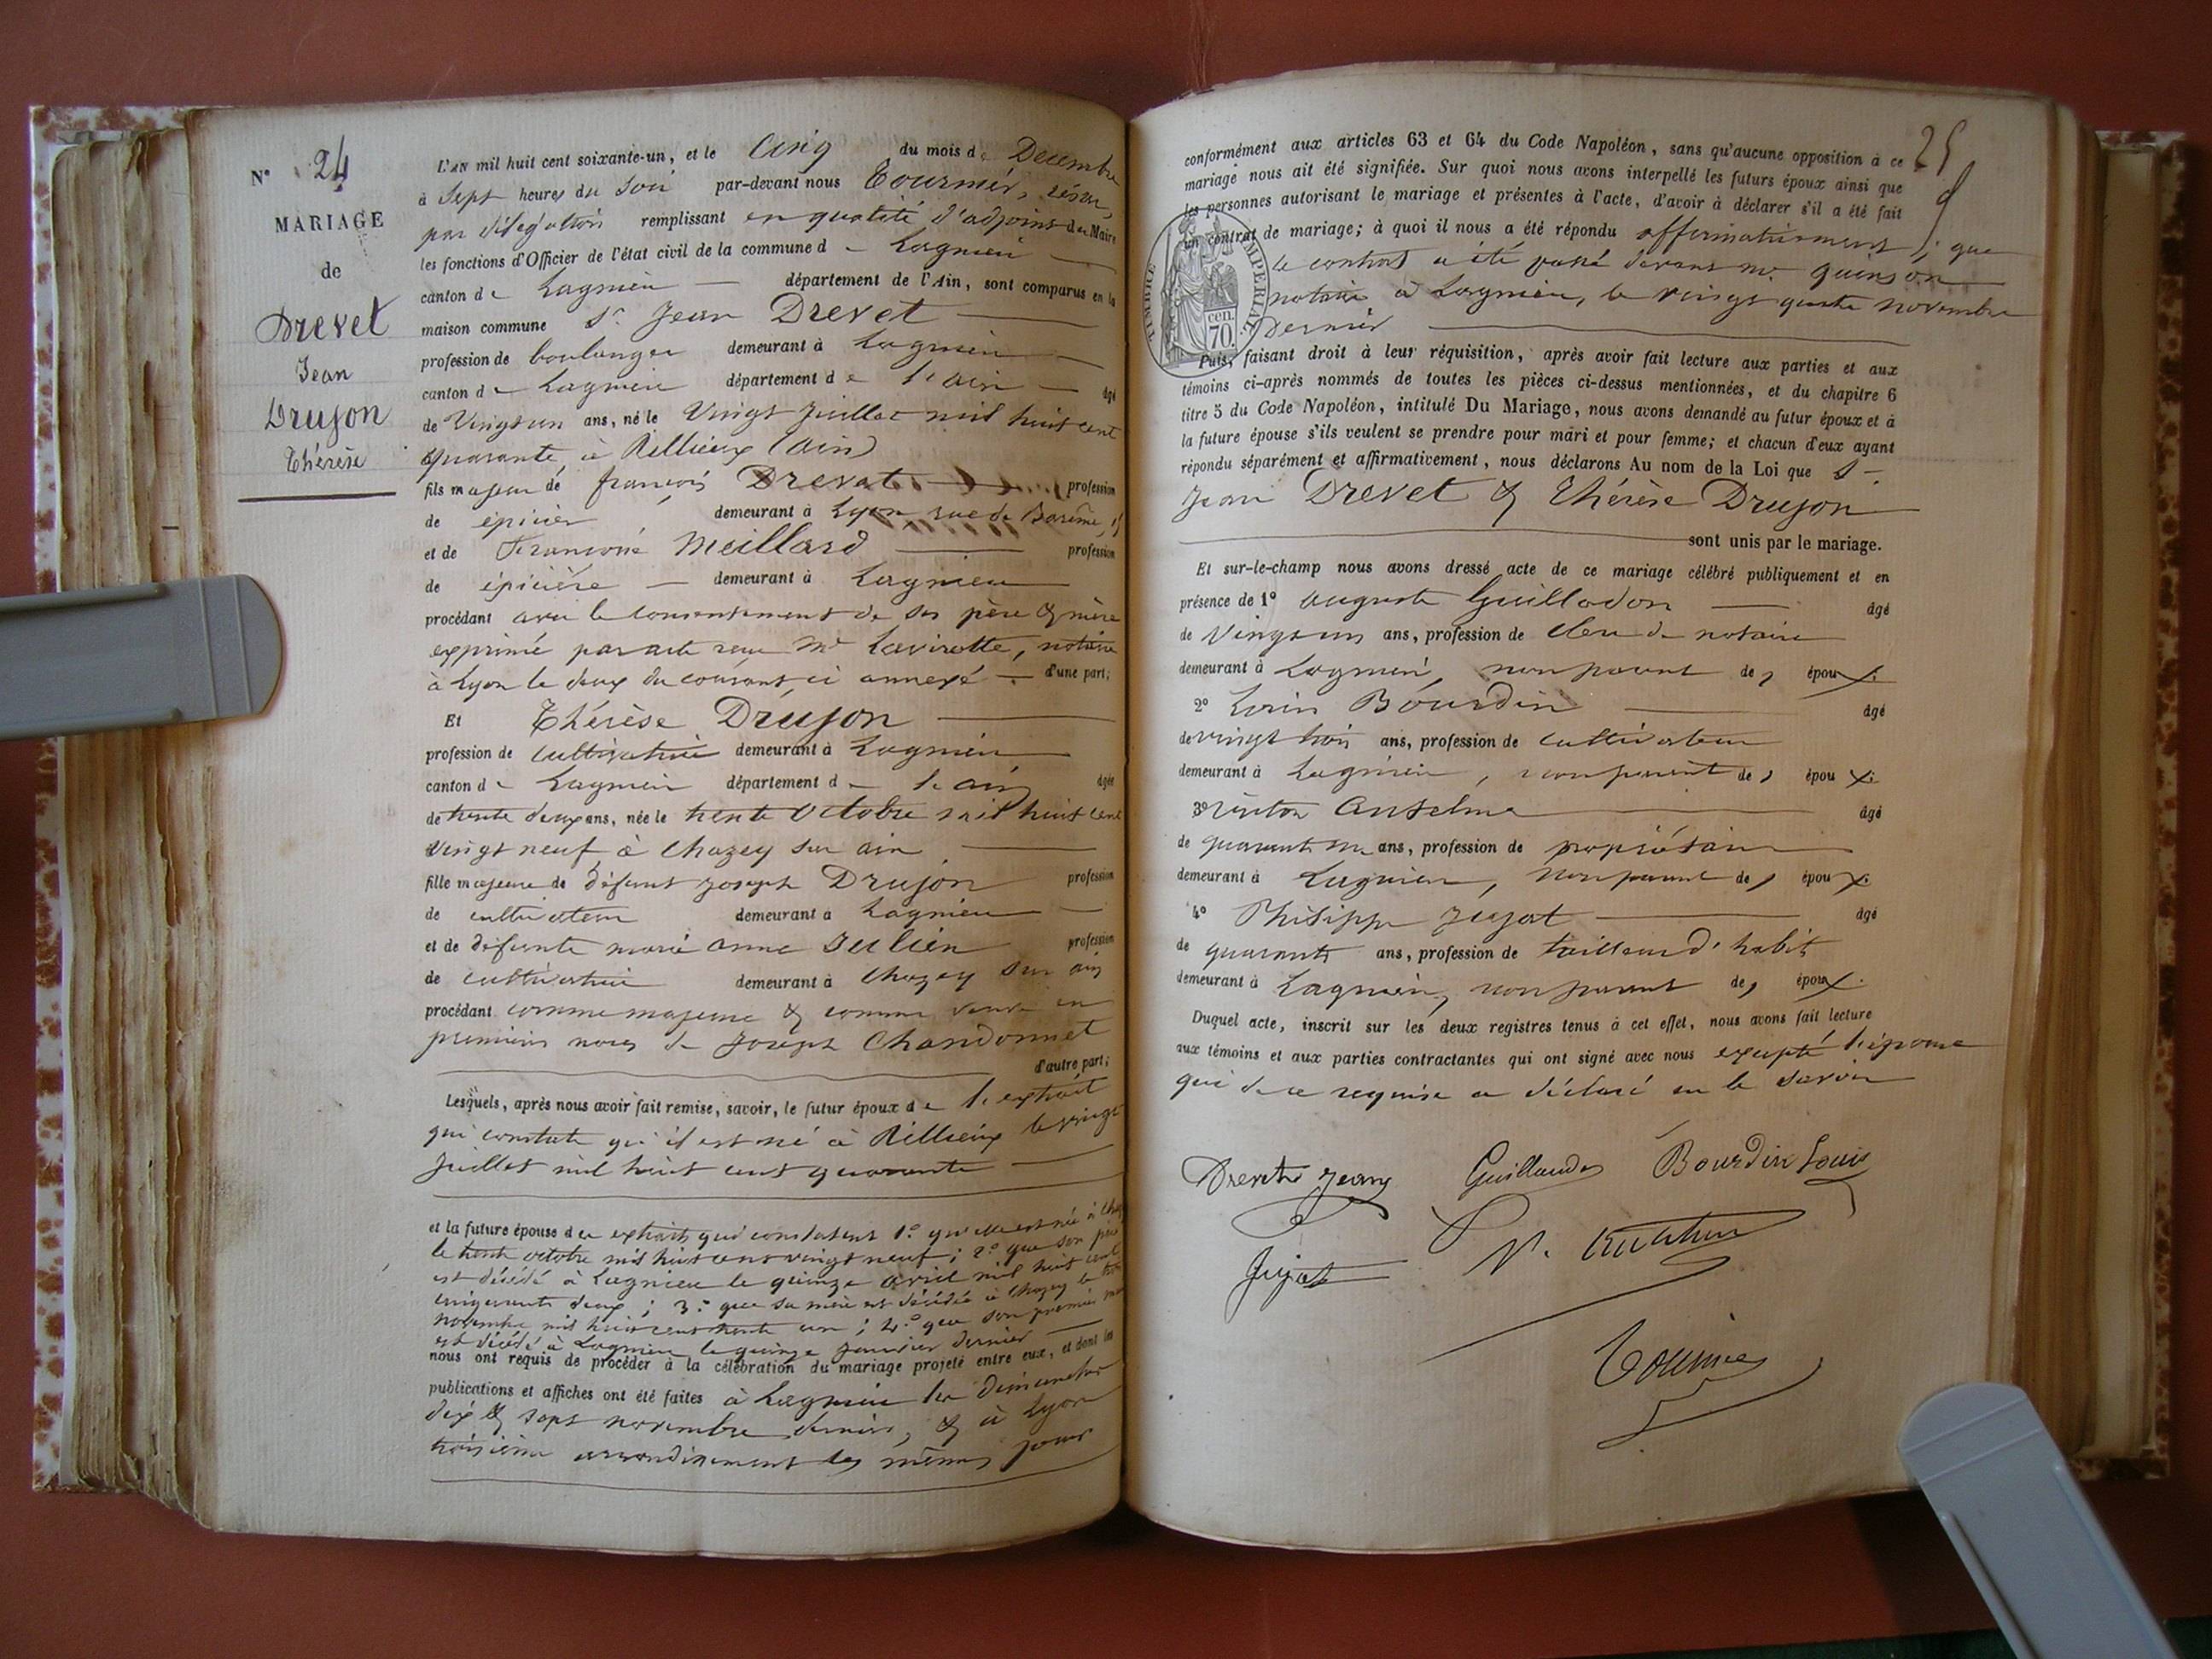 N° 24
MARIAGE
de
Drevet
Jean
Drujon
Thérèse
L'AN mil huit cent soixante-un, et le Cinq du mois de Decembre
à Sept heures du Soir par-devant nous Tournier, César,
par délégation remplissant en qualité d'adjoint du Maire
les fonctions d'Officier de l'état civil de la commune d e Lagnieu
canton de Lagnieu département de l'Ain, sont comparus en la
maison commune Sr Jean Drevet
profession de boulanger demeurant à Lagnieu
canton de Lagnieu département de l'ain âgé
de Vingt un ans, né le Vingt Juillet mil huit cent
quarante à Rillieux (ain)
fils majeur de françois Drevet profession
de épicier demeurant à Lyon rue de Barême,
et de Françoise Meillard profession
de épicière demeurant à Lagnieu
procédant avec le consentement de ses père & mère
exprimé par acte reçu Me Lavirotte, notaire
à Lyon le deux du courant ci annexé d'une part;
Et Thérèse Drujon
profession de cultivatrice demeurant à Lagnieu
canton de Lagnieu département de l'ain âgée
de trente deux ans, née le trente Octobre mil huit cent
vingt neuf à Chazey sur ain
fille majeure de défunt Joseph Drujon profession
de cultivateur demeurant à Lagnieu
et de défunte marie anne Julien profession
de cultivatrice demeurant à Chazey sur ain
procédant comme majeure & comme veuve en
premières noces de Joseph Chandonnet
d'autre part;
Lesquels, après nous avoir fait remise, savoir, le futur époux de l'extrait
qui constate qu'il est né à Rillieux le vingt
Juillet mil huit cent quarante
et la future épouse des extraits qui constatent 1° qu'elle est née à Chazey
le trente octobre mil huit cent vingt neuf; 2° que son père
est décédé à Lagnieu le quinze avril mil huit cent
cinquante deux; 3° que sa mère est décédée à Chazey le
novembre mil huit cent trente un; 4° que son premier mari
est décédé à Lagnieu le quinze janvier dernier
nous ont requis de procéder à la célébration du mariage projeté entre eux, et dont les
publications et affiches ont été faites à Lagnieu les dimanches
dix & dix sept novembre dernier, & à Lyon
troisième arrondissement les mêmes jours
25
conformément aux articles 63 et 64 du Code Napoléon, sans qu'aucune opposition à ce
mariage nous ait été signifiée. Sur quoi nous avons interpellé les futurs époux ainsi que
les personnes autorisant le mariage et présentes à l'acte, d'avoir à déclarer s'il a été fait
un contrat de mariage; à quoi il nous a été répondu affirmativement & que
le contrat a été passé devant me quinson
notaire à Lagnieu, le vingt quatre novembre
dernier
TIMBRE IMPERIAL
cen. 70.
Puis, faisant droit à leur réquisition, après avoir fait lecture aux parties et aux
témoins ci-après nommés de toutes les pièces ci-dessus mentionnées, et du chapitre 6
titre 5 du Code Napoléon, intitulé Du Mariage, nous avons demandé au futur époux et à
la future épouse s'ils veulent se prendre pour mari et pour femme; et chacun d'eux ayant
répondu séparément et affirmativement, nous déclarons Au nom de la Loi que Sr
Jean Drevet & Thérèse Drujon
sont unis par le mariage.
Et sur-le-champ nous avons dressé acte de ce mariage célébré publiquement et en
présence de 1° auguste Guillodon âgé
de Vingt un ans, profession de clerc de notaire
demeurant à Lagnieu, non parent de, épou x.
2° Louis Bourdin âgé
de vingt trois ans, profession de cultivateur
demeurant à Lagnieu, non parent de, épou x.
3° Anselme âgé
de quarante un ans, profession de propriétaire
demeurant à Lagnieu, non parent de, épou x.
4° Philippe Jujat âgé
de quarante ans, profession de tailleur d'habit
demeurant à Lagnieu, non parent de, époux.
Duquel acte, inscrit sur les deux registres tenus à cet effet, nous avons fait lecture
aux témoins et aux parties contractantes qui ont signé avec nous excepté l'épouse
qui de ce requise a déclaré ne le savoir
Drevet Jean Bourdin Louis
Jujat
Tournier